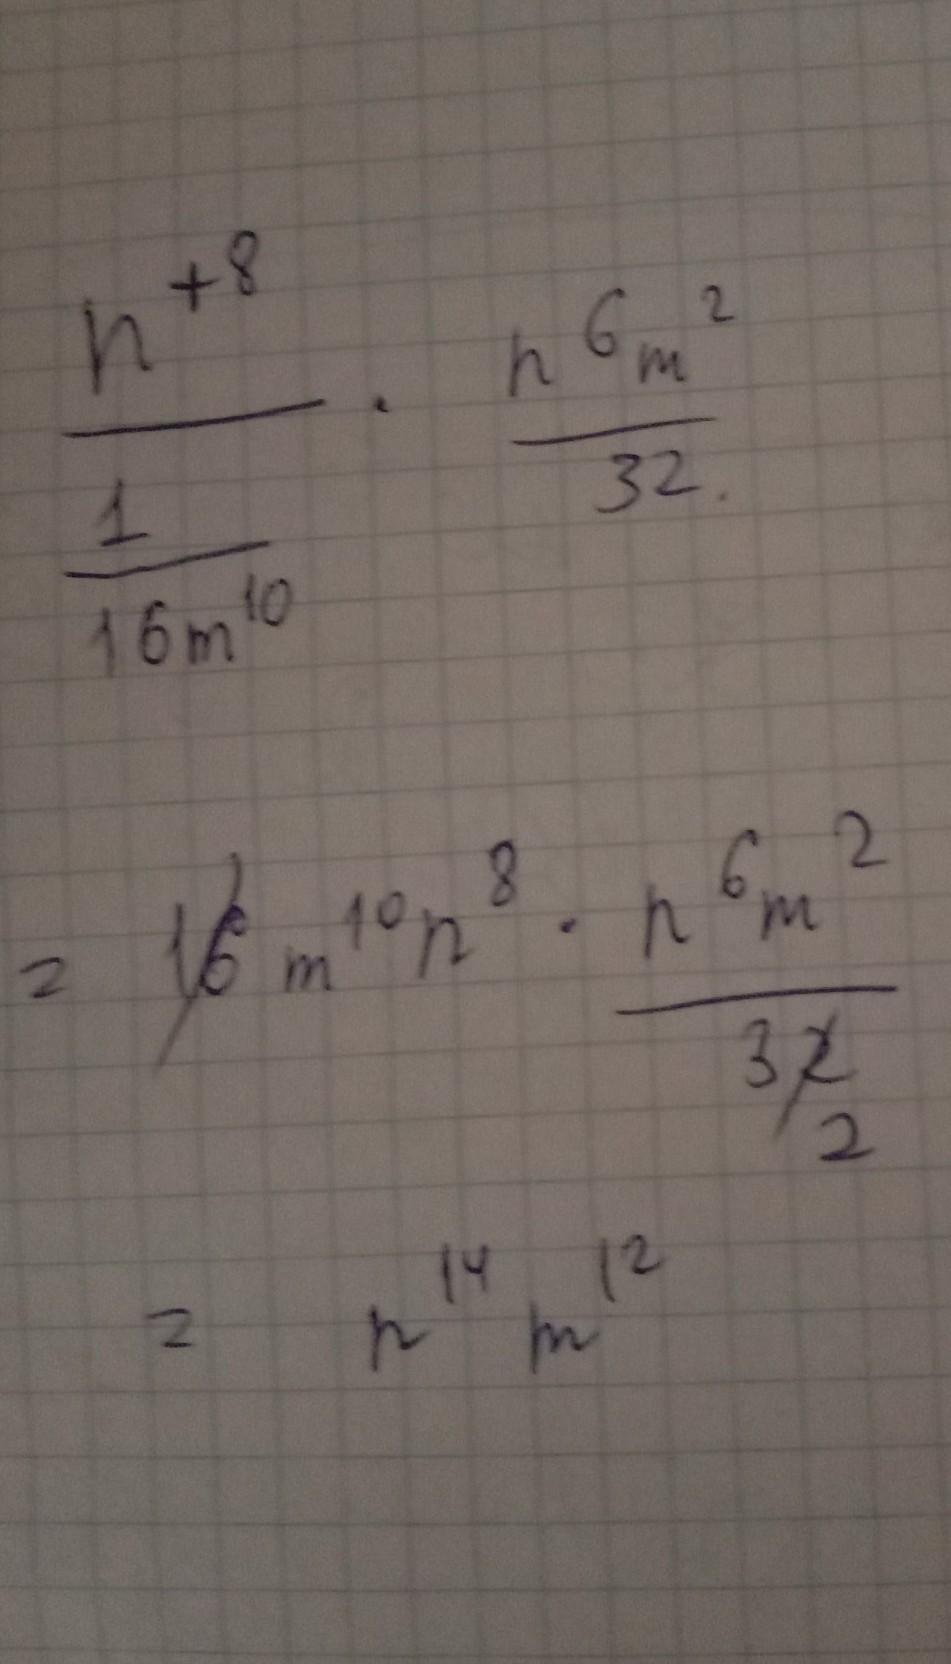 n⁺⁸ / (1 / 16m¹⁰) · n⁶m² / 32.
= 16 m¹⁰n⁸ · n⁶m² / 32 2
= n¹⁴ m¹²